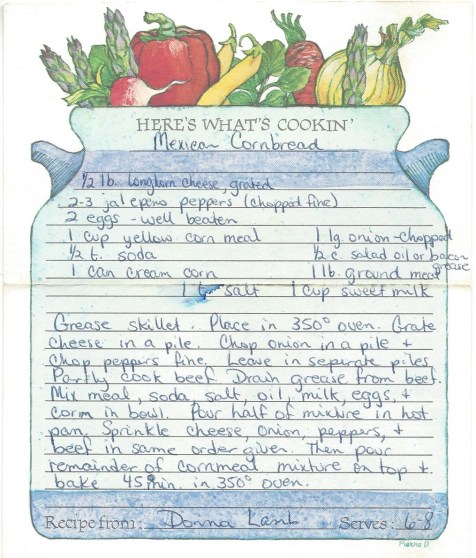 HERE'S WHAT'S COOKIN'
Mexican Cornbread
1/2 lb. longhorn cheese, grated
2-3 jalepeno peppers (chopped fine)
2 eggs - well beaten
1 cup yellow corn meal
1 lg onion - chopped
1/2 t. soda
1/2 c. salad oil or bacon grease
1 can cream corn
1 lb. ground meat
1 t salt
1 cup sweet milk
Grease skillet. Place in 350° oven. Grate
cheese in a pile. Chop onion in a pile &
Chop peppers fine. Leave in seperate piles
Partly cook beef. Drain grease from beef.
Mix meal, soda, salt, oil, milk, eggs, &
corn in bowl. Pour half of mixture in hot
pan. Sprinkle cheese, onion, peppers, &
beef in same order given. Then pour
remainder of cornmeal mixture on top &
bake 45 min. in 350° oven.
Recipe from: Donna Lamb Serves: 6-8